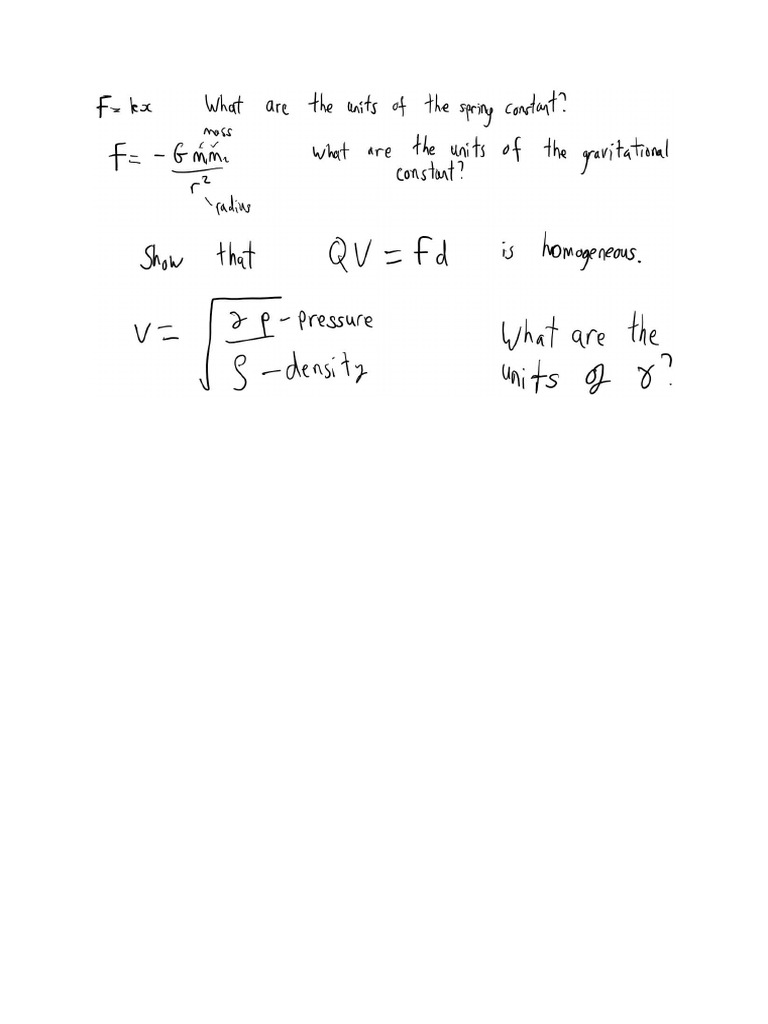 F = kx What are the units of the spring constant?
mass
F = - G m₁m₂ / r² What are the units of the gravitational
constant?
radius
Show that QV = Fd is homogeneous.
V = √(γP / ρ) - pressure What are the
- density units of γ?